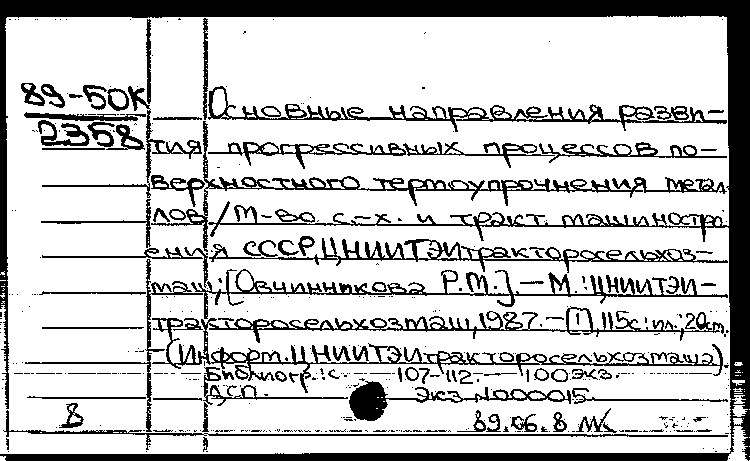 89-50К
2358
Основные направления разви-
тия прогрессивных процессов по-
верхностного термоупрочнения метал-
лов/М-во с.-х. и тракт. машиностро
ения СССР, ЦНИИТЭИтракторосельхоз-
маш; [Овчинникова Р.М.]. — М.: ЦНИИТЭИ-
тракторосельхозмаш, 1987. — [1], 115с.: ил.; 20см.
—(Информ. ЦНИИТЭИтракторосельхозмаша).
Библиогр.: с. 107-112. — 100 экз.
ДСП. Экз. №000015.
8 89.06.8